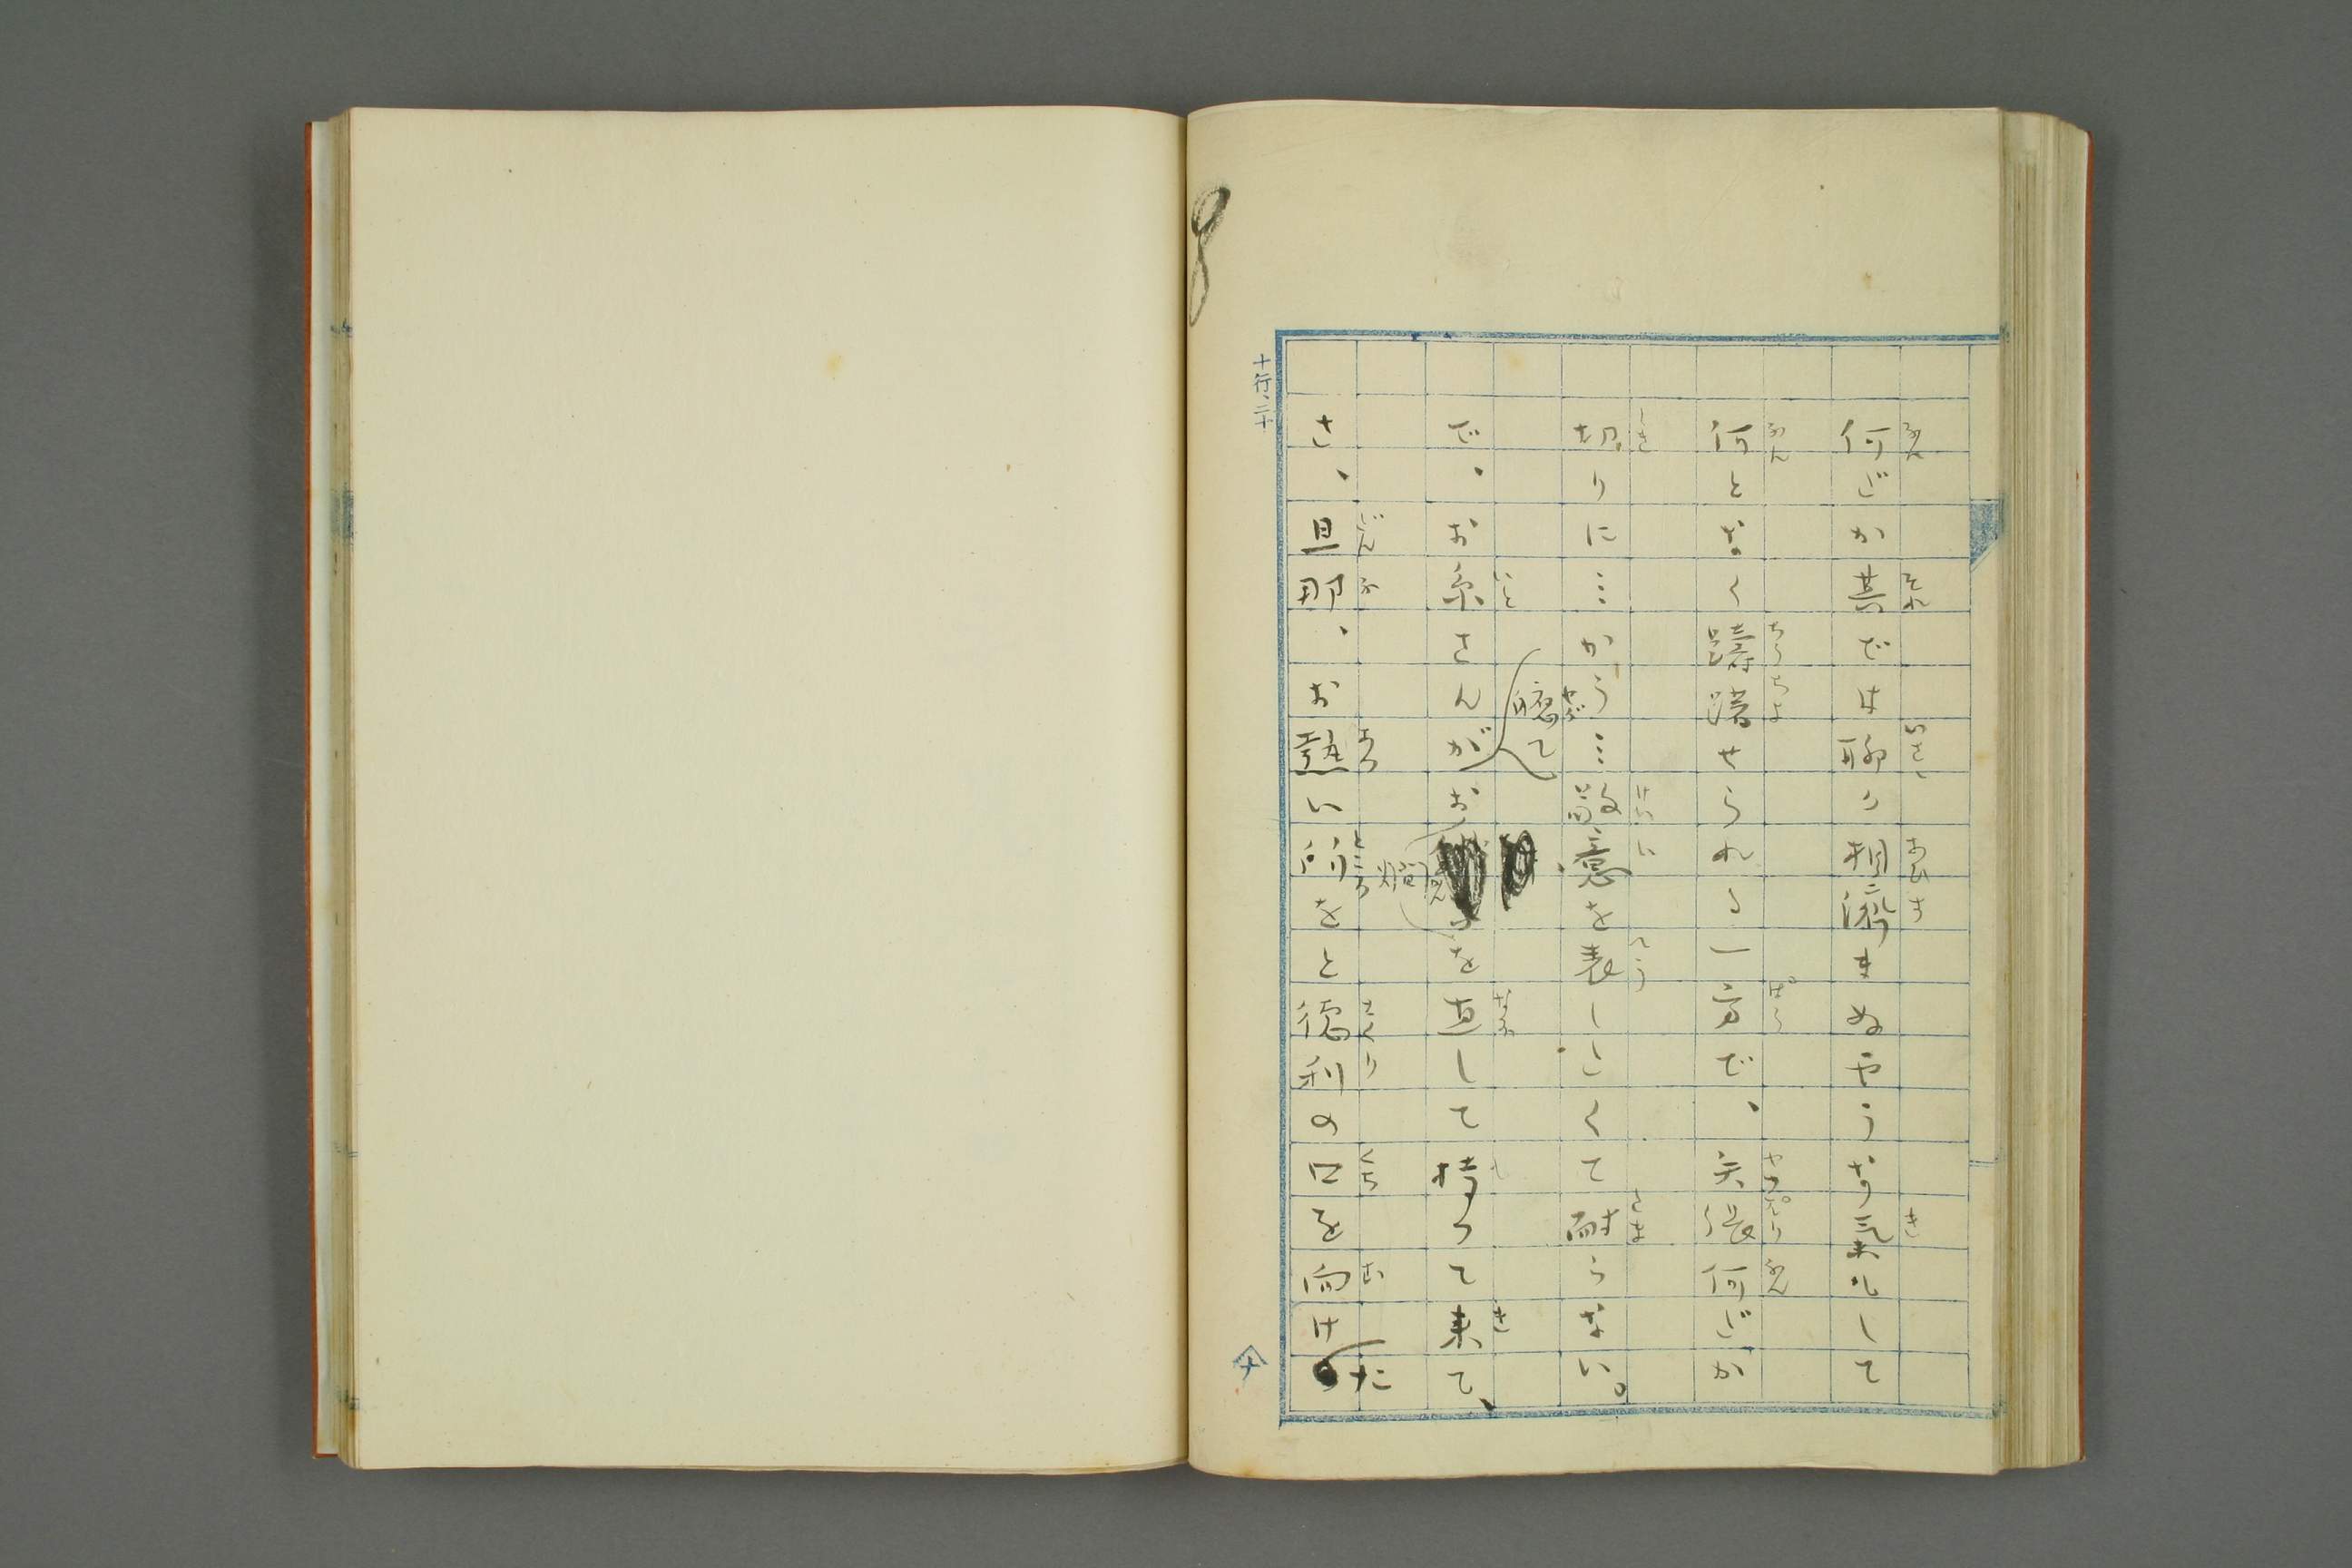 何だか其では聊か相済まぬやうな気もして
何となく躊躇せられる一方で、矢張何だか
切りに…かう…敬意を表したくて耐らない。
で、お糸さんが膺てお燗を直して持つて来て、
さ、旦那、お熱い所をと徳利の口を向けた
十行、二十